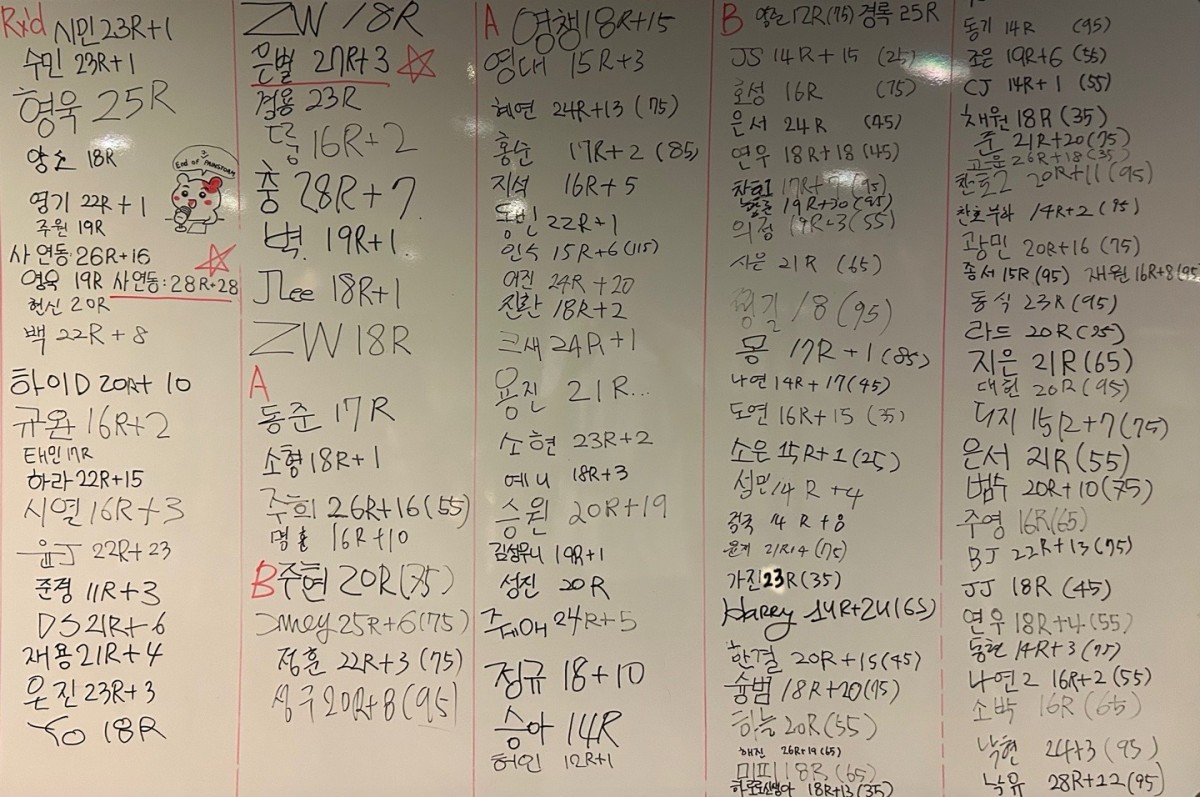 Rxd 시민 23R+1
수민 23R+1
형욱 25R
양소 18R
End of RAINSTORM
영기 22R+1
주원 19R
사 연동:26R+16
영욱 19R 사연동:28R+28
헌신 20R
백 22R+8
하이D 20R+10
규완 16R+2
태민 17R
하라 22R+15
시열 16R+3
윤J 22R+23
준경 11R+3
DS 21R+6
재용 21R+4
은진 23R+3
Yo 18R
ZW 18R
은별 27R+3
경용 23R
16R+2
충 28R+7
벽. 19R+1
JLee 18R+1
ZW 18R
A
동준 17R
소형 18R+1
주희 26R+16 (55)
명훈 16R+10
B 주현 20R(75)
Jmey 25R+6(75)
정훈 22R+3 (75)
성구 20R+8 (95)
A 영챙 18R+15
영대 15R+3
혜연 24R+13 (75)
홍순 17R+2 (85)
지석 16R+5
동빈 22R+1
인수 15R+6(115)
여진 24R+20
진환 18R+2
크새 24R+1
용진 21R...
소현 23R+2
예니 18R+3
승원 20R+19
19R+1
성진 20R
쥬쎄애 24R+5
정규 18+10
승아 14R
허인 12R+1
B 12R(75) 경록 25R
JS 14R+15 (25)
호성 16R (75)
은서 24R (45)
연우 18R+18 (45)
찬호1 17R+7 (95)
19R+20 (95)
의정 19R+3(55)
사은 21R (65)
형길 18(95)
몽 17R+1(85)
나연 14R+17(45)
도연 16R+15 (35)
소은 15R+1(25)
섭민 14R+4
정욱 14R+8
윤기 21R+4 (75)
가진 23R(35)
Harry 14R+24(65)
한결 20R+15(45)
슝범 18R+20(75)
하늘 20R(55)
해진 26R+19(65)
미피 18R (65)
18R+13(35)
동기 14R (95)
조은 19R+6 (55)
CJ 14R+1 (55)
채원 18R (35)
준 21R+20(75)
고운 26R+18(35)
찬호2 20R+11 (95)
찬호부하 14R+2 (95)
광민 20R+16 (75)
종서 15R(95) 재원 16R+8(95)
동식 23R(95)
라드 20R(25)
지은 21R(65)
대헌 20R(95)
더지 15R+7(75)
은서 21R(55)
범수 20R+10(75)
주영 16R(65)
BJ 22R+13(75)
JJ 18R (45)
연우 18R+4(55)
동현 14R+3(75)
나연2 16R+2 (55)
소박 16R (65)
낙현 24+3 (95)
낙유 28R+22(95)